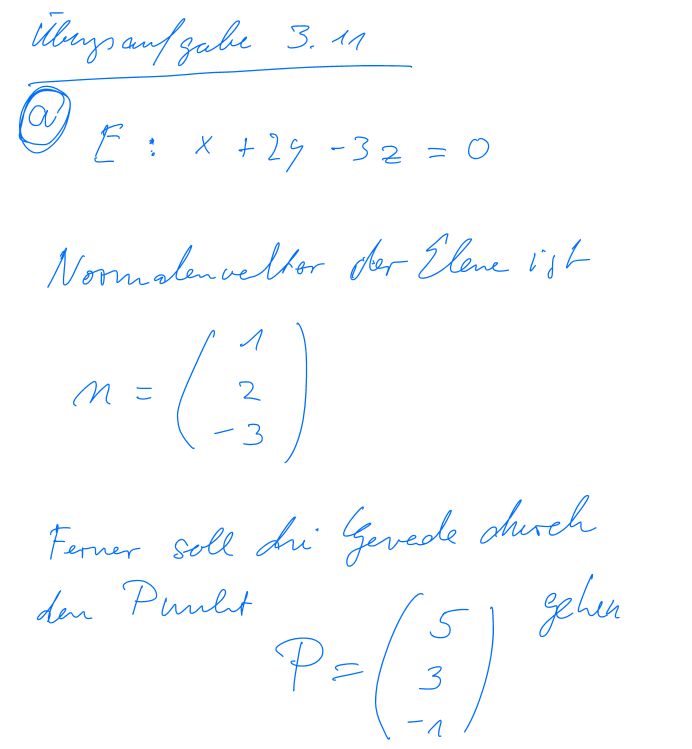 Übungsaufgabe 3.11
a) E: x + 2y - 3z = 0
Normalenvektor der Ebene ist
n = (1
2
-3)
Ferner soll die Gerade durch
den Punkt P = (5
3
-1) gehen